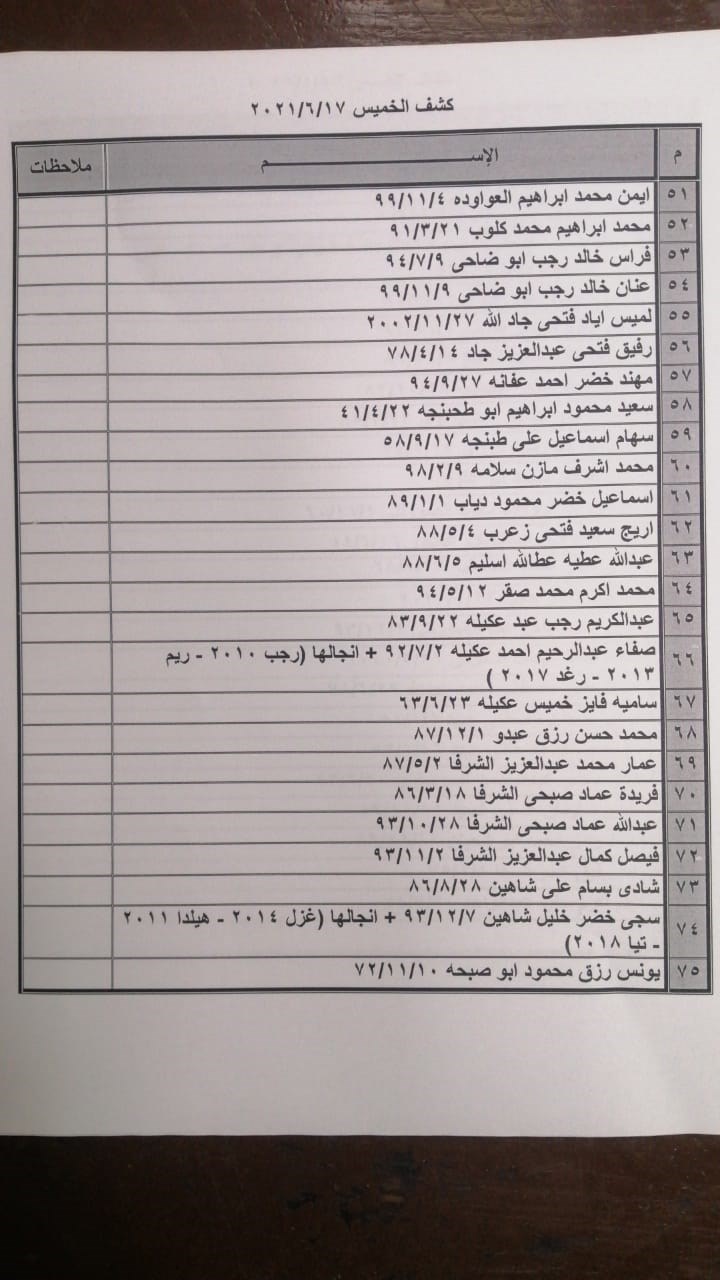 كشف الخميس ٢٠٢١/٦/١٧
م الإســـــــــم ملاحظات
٥١ ايمن محمد ابراهيم العواوده ٩٩/١١/٤
٥٢ محمد ابراهيم محمد كلوب ٩١/٣/٢١
٥٣ فراس خالد رجب ابو ضاحى ٩٤/٧/٩
٥٤ عنان خالد رجب ابو ضاحى ٩٩/١١/٩
٥٥ لميس اياد فتحى جاد الله ٢٠٠٢/١١/٢٧
٥٦ رفيق فتحى عبدالعزيز جاد ٧٨/٤/١٤
٥٧ مهند خضر احمد عفانه ٩٤/٩/٢٧
٥٨ سعيد محمود ابراهيم ابو طحبنجه ٤١/٤/٢٢
٥٩ سهام اسماعيل على طبنجه ٥٨/٩/١٧
٦٠ محمد اشرف مازن سلامه ٩٨/٢/٩
٦١ اسماعيل خضر محمود دياب ٨٩/١/١
٦٢ اريج سعيد فتحى زعرب ٨٨/٥/٤
٦٣ عبدالله عطيه عطالله اسليم ٨٨/٦/٥
٦٤ محمد اكرم محمد صقر ٩٤/٥/١٢
٦٥ عبدالكريم رجب عبد عكيله ٨٣/٩/٢٢
٦٦ صفاء عبدالرحيم احمد عكيله ٩٢/٧/٢ + انجالها (رجب ٢٠١٠ - ريم
٢٠١٣ - رغد ٢٠١٧ )
٦٧ ساميه فايز خميس عكيله ٦٣/٦/٢٣
٦٨ محمد حسن رزق عبدو ٨٧/١٢/١
٦٩ عمار محمد عبدالعزيز الشرفا ٨٧/٥/٢
٧٠ فريدة عماد صبحى الشرفا ٨٦/٣/١٨
٧١ عبدالله عماد صبحى الشرفا ٩٣/١٠/٢٨
٧٢ فيصل كمال عبدالعزيز الشرفا ٩٣/١١/٢
٧٣ شادى بسام على شاهين ٨٦/٨/٢٨
٧٤ سجى خضر خليل شاهين ٩٣/١٢/٧ + انجالها (غزل ٢٠١٤ - هيلدا ٢٠١١
- تيا ٢٠١٨)
٧٥ يونس رزق محمود ابو صبحه ٧٢/١١/١٠